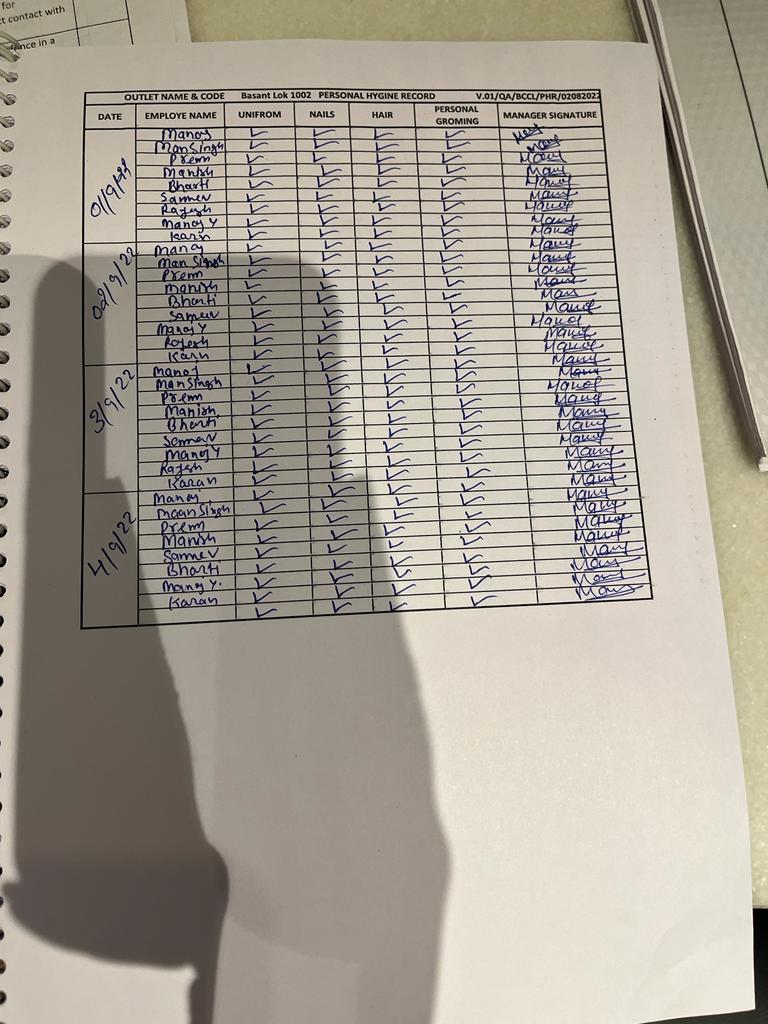 for
ct contact with
ance in a
OUTLET NAME & CODE Basant Lok 1002 PERSONAL HYGINE RECORD V.01/QA/BCCL/PHR/02082022
DATE EMPLOYE NAME UNIFROM NAILS HAIR PERSONAL GROMING MANAGER SIGNATURE
01/9/22
Manoj ✓ ✓ ✓ ✓
ManSingh ✓ ✓ ✓ ✓
Prem ✓ ✓ ✓ ✓ Manoj
Manish ✓ ✓ ✓ ✓ Manoj
Bharti ✓ ✓ ✓ ✓ Manoj
Sameer ✓ ✓ ✓ ✓ Manoj
Rajesh ✓ ✓ ✓ ✓ Manoj
Manoj Y ✓ ✓ ✓ ✓ Manoj
Karn ✓ ✓ ✓ ✓ Manoj
02/9/22
Manoj ✓ ✓ ✓ ✓ Manoj
Man Singh ✓ ✓ ✓ ✓ Manoj
Prem ✓ ✓ ✓ ✓ Manoj
Manish ✓ ✓ ✓ ✓ Manoj
Bharti ✓ ✓ ✓ ✓ Manoj
Sameer ✓ ✓ ✓ ✓ Manoj
Manoj Y ✓ ✓ ✓ ✓ Manoj
Rajesh ✓ ✓ ✓ ✓ Manoj
Karn ✓ ✓ ✓ ✓ Manoj
3/9/22
Manoj ✓ ✓ ✓ ✓ Manoj
ManSingh ✓ ✓ ✓ ✓ Manoj
Prem ✓ ✓ ✓ ✓ Manoj
Manish ✓ ✓ ✓ ✓ Manoj
Bharti ✓ ✓ ✓ ✓ Manoj
Sameer ✓ ✓ ✓ ✓ Manoj
Manoj Y ✓ ✓ ✓ ✓ Manoj
Rajesh ✓ ✓ ✓ ✓ Manoj
Karan ✓ ✓ ✓ ✓ Manoj
4/9/22
Manoj ✓ ✓ ✓ ✓ Manoj
Maan Singh ✓ ✓ ✓ ✓ Manoj
Prem ✓ ✓ ✓ ✓ Manoj
Manish ✓ ✓ ✓ ✓ Manoj
Sameer ✓ ✓ ✓ ✓ Manoj
Bharti ✓ ✓ ✓ ✓ Manoj
Manoj Y. ✓ ✓ ✓ ✓ Manoj
Karan ✓ ✓ ✓ ✓ Manoj